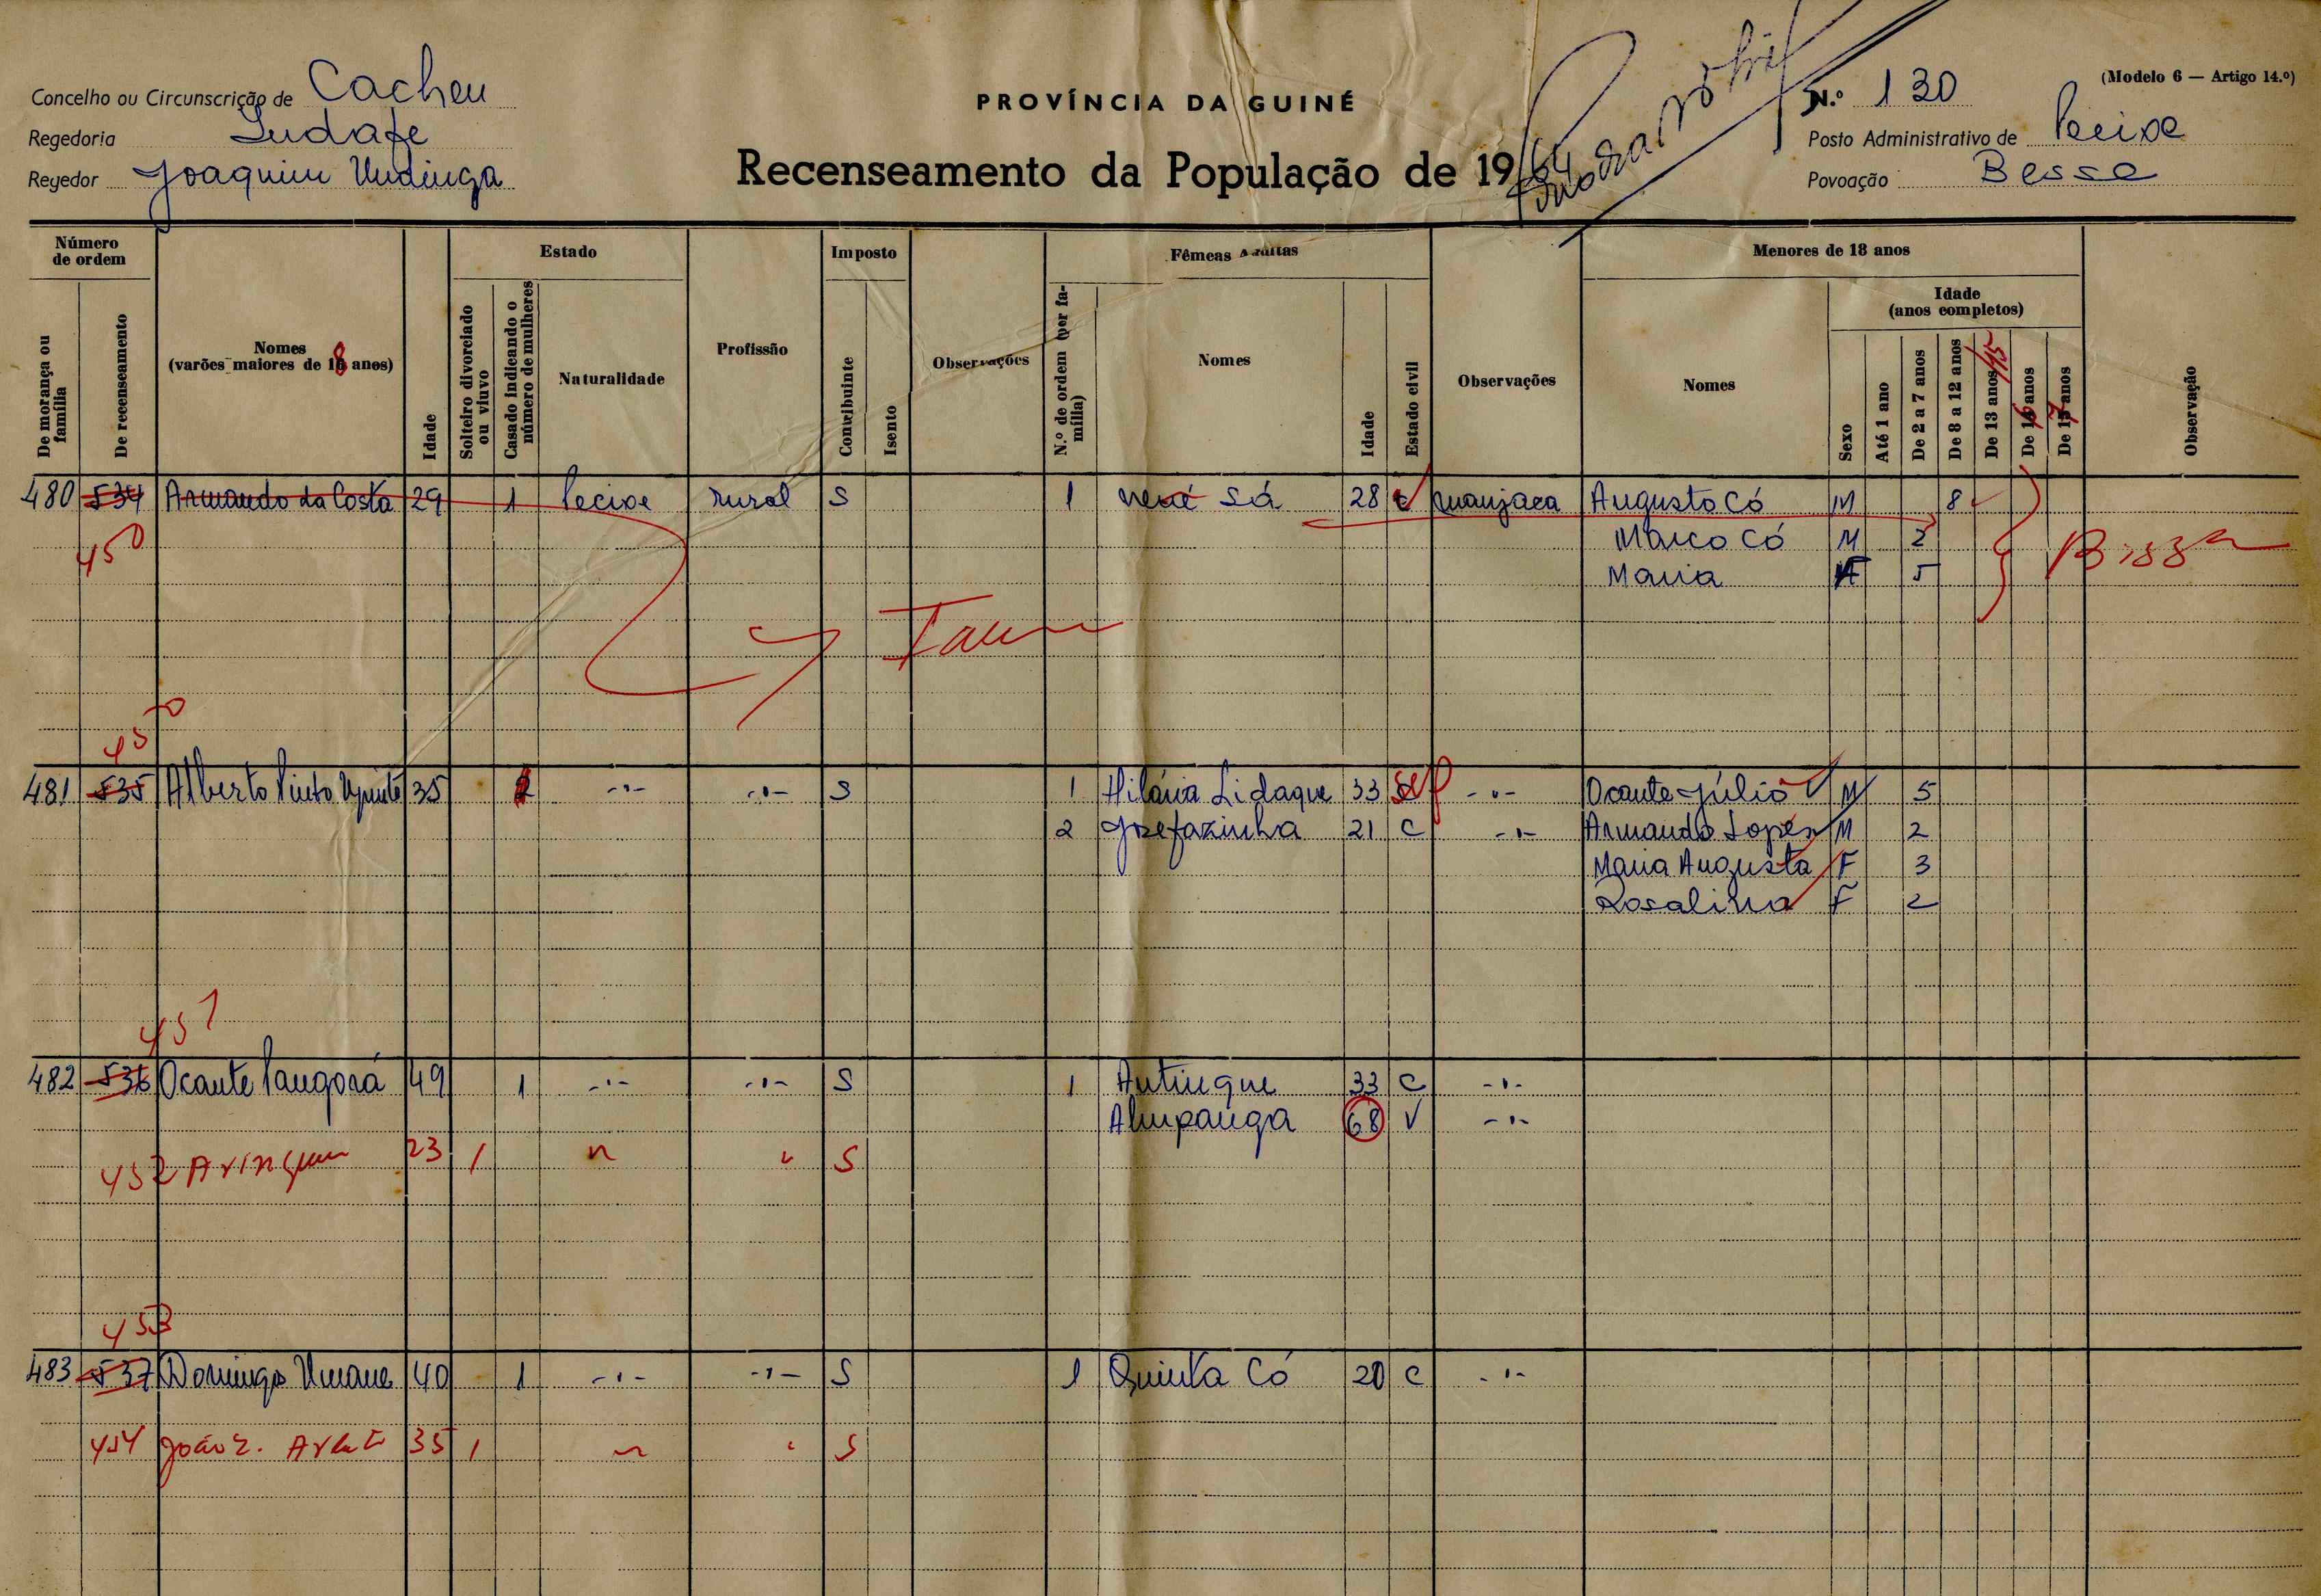 Concelho ou Circunscrição de Cacheu
Regedoria
Regedor Joaquim Undinga
PROVÍNCIA DA GUINÉ
Recenseamento da População de 1964
(Modelo 6 — Artigo 14.º)
N.º 130
Posto Administrativo de Pecixe
Povoação Besse
Número de ordem
De morança ou família
De recenseamento
Nomes (varões maiores de 18 anos)
Idade
Estado
Solteiro divorciado ou viuvo
Casado indicando o número de mulheres
Naturalidade
Profissão
Imposto
Contribuinte
Isento
Observações
Fêmeas Adultas
N.º de ordem (por família)
Nomes
Idade
Estado civil
Observações
Menores de 18 anos
Nomes
Idade (anos completos)
Sexo
Até 1 ano
De 2 a 7 anos
De 8 a 12 anos
De 13 anos 15
De 16 anos
De 17 anos
Observação
480 534 Armando da Costa 29 1 Pecixe rural S 1 Nené Sá 28 c manjaca Augusto Có M 8
450 Marco Có M 2
Maria F 5
450
481 535 Alberto Pinto 35 -"- -"- S 1 Hilária Lidaque 33 -"- Ocante Júlio M 5
2 Josefazinha 21 C -"- Armando Lopes M 2
Maria Augusta F 3
Rosalina F 2
451
482 536 Ocante Pangorá 49 1 -"- -"- S 1 Antinque 33 C -"-
Alupanga 68 V -"-
452 23 1 " " S
453
483 537 Domingo Umane 40 1 -"- -"- S 1 Quinta Có 20 C -"-
454 João 35 1 " " S